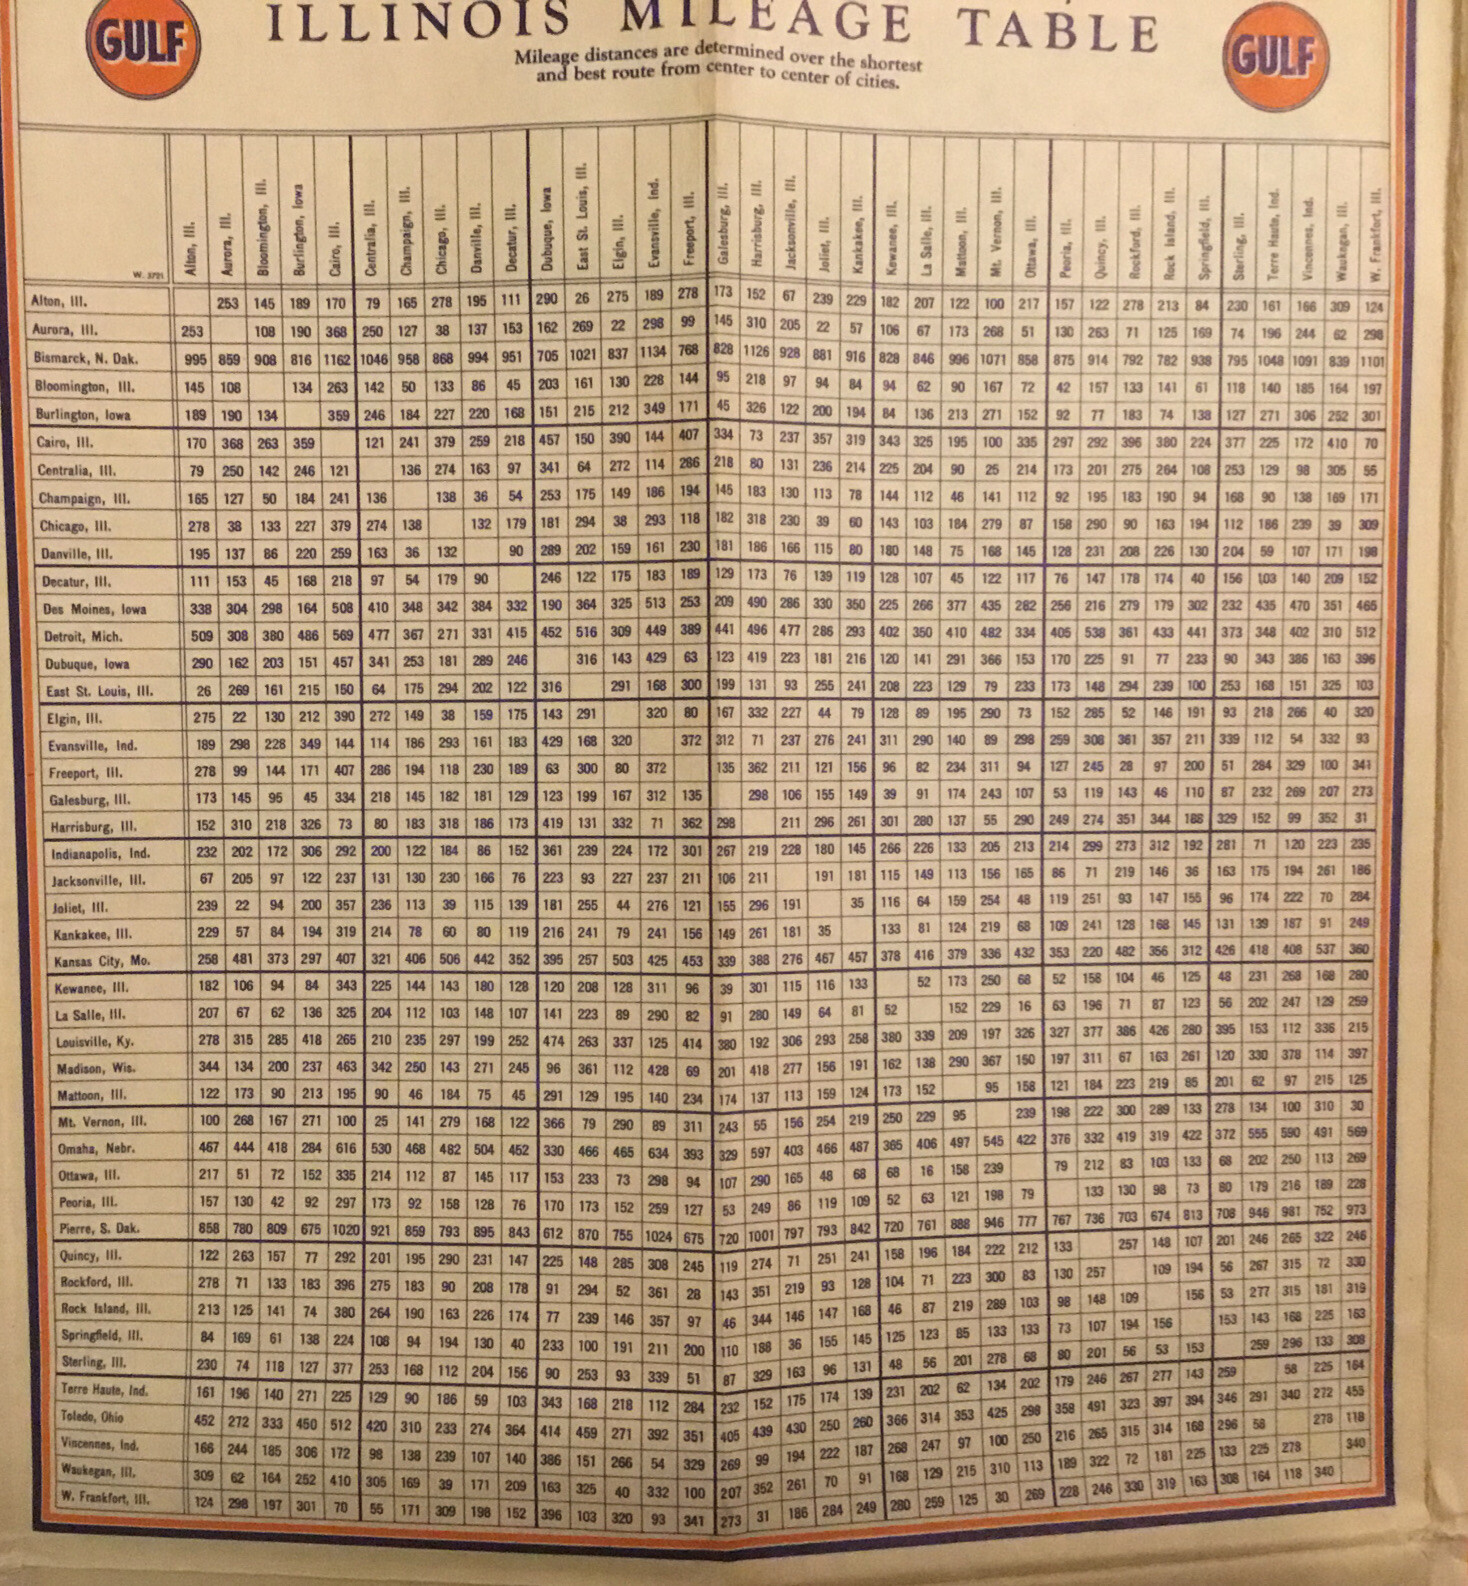 GULF
ILLINOIS MILEAGE TABLE
GULF
Mileage distances are determined over the shortest
and best route from center to center of cities.
W. 3721
Alton, Ill. Aurora, Ill. Bloomington, Ill. Burlington, Iowa Cairo, Ill. Centralia, Ill. Champaign, Ill. Chicago, Ill. Danville, Ill. Decatur, Ill. Dubuque, Iowa East St. Louis, Ill. Elgin, Ill. Evansville, Ind. Freeport, Ill. Galesburg, Ill. Harrisburg, Ill. Jacksonville, Ill. Joliet, Ill. Kankakee, Ill. Kewanee, Ill. La Salle, Ill. Mattoon, Ill. Mt. Vernon, Ill. Ottawa, Ill. Peoria, Ill. Quincy, Ill. Rockford, Ill. Rock Island, Ill. Springfield, Ill. Sterling, Ill. Terre Haute, Ind. Vincennes, Ind. Waukegan, Ill. W. Frankfort, Ill.
Alton, Ill. 253 145 189 170 79 165 278 195 111 290 26 275 189 278 173 152 67 239 229 182 207 122 100 217 157 122 278 213 84 230 161 166 309 124
Aurora, Ill. 253 108 190 368 250 127 38 137 153 162 269 22 298 99 145 310 205 22 57 106 67 173 268 51 130 263 71 125 169 74 196 244 62 298
Bismarck, N. Dak. 995 859 908 816 1162 1046 958 868 994 951 705 1021 837 1134 768 828 1126 928 881 916 828 846 996 1071 858 875 914 792 782 938 795 1048 1091 839 1101
Bloomington, Ill. 145 108 134 263 142 50 133 86 45 203 161 130 228 144 95 218 97 94 84 94 62 90 167 72 42 157 133 141 61 118 140 185 164 197
Burlington, Iowa 189 190 134 359 246 184 227 220 168 151 215 212 349 171 45 326 122 200 194 84 136 213 271 152 92 77 183 74 138 127 271 306 252 301
Cairo, Ill. 170 368 263 359 121 241 379 259 218 457 150 390 144 407 334 73 237 357 319 343 325 195 100 335 297 292 396 380 224 377 225 172 410 70
Centralia, Ill. 79 250 142 246 121 136 274 163 97 341 64 272 114 286 218 80 131 236 214 225 204 90 25 214 173 201 275 264 108 253 129 98 305 55
Champaign, Ill. 165 127 50 184 241 136 138 36 54 253 175 149 186 194 145 183 130 113 78 144 112 46 141 112 92 195 183 190 94 168 90 138 169 171
Chicago, Ill. 278 38 133 227 379 274 138 132 179 181 294 38 293 118 182 318 230 39 60 143 103 184 279 87 158 290 90 163 194 112 186 239 39 309
Danville, Ill. 195 137 86 220 259 163 36 132 90 289 202 159 161 230 181 186 166 115 80 180 148 75 168 145 128 231 208 226 130 204 59 107 171 198
Decatur, Ill. 111 153 45 168 218 97 54 179 90 246 122 175 183 189 129 173 76 139 119 128 107 45 122 117 76 147 178 174 40 156 103 140 209 152
Des Moines, Iowa 338 304 298 164 508 410 348 342 384 332 190 364 325 513 253 209 490 286 330 350 225 266 377 435 282 256 216 279 179 302 232 435 470 351 465
Detroit, Mich. 509 308 380 486 569 477 367 271 331 415 452 516 309 449 389 441 496 477 286 293 402 350 410 482 334 405 538 361 433 441 373 348 402 310 512
Dubuque, Iowa 290 162 203 151 457 341 253 181 289 246 316 143 429 63 123 419 223 181 216 120 141 291 366 153 170 225 91 77 233 90 343 386 163 396
East St. Louis, Ill. 26 269 161 215 150 64 175 294 202 122 316 291 168 300 199 131 93 255 241 208 223 129 79 233 173 148 294 239 100 253 168 151 325 103
Elgin, Ill. 275 22 130 212 390 272 149 38 159 175 143 291 320 80 167 332 227 44 79 128 89 195 290 73 152 285 52 146 191 93 218 266 40 320
Evansville, Ind. 189 298 228 349 144 114 186 293 161 183 429 168 320 372 312 71 237 276 241 311 290 140 89 298 259 308 361 357 211 339 112 54 332 93
Freeport, Ill. 278 99 144 171 407 286 194 118 230 189 63 300 80 372 135 362 211 121 156 96 82 234 311 94 127 245 28 97 200 51 284 329 100 341
Galesburg, Ill. 173 145 95 45 334 218 145 182 181 129 123 199 167 312 135 298 106 155 149 39 91 174 243 107 53 119 143 46 110 87 232 269 207 273
Harrisburg, Ill. 152 310 218 326 73 80 183 318 186 173 419 131 332 71 362 298 211 296 261 301 280 137 55 290 249 274 351 344 188 329 152 99 352 31
Indianapolis, Ind. 232 202 172 306 292 200 122 184 86 152 361 239 224 172 301 267 219 228 180 145 266 226 133 205 213 214 299 273 312 192 281 71 120 223 235
Jacksonville, Ill. 67 205 97 122 237 131 130 230 166 76 223 93 227 237 211 106 211 191 181 115 149 113 156 165 86 71 219 146 36 163 175 194 261 186
Joliet, Ill. 239 22 94 200 357 236 113 39 115 139 181 255 44 276 121 155 296 191 35 116 64 159 254 48 119 251 93 147 155 96 174 222 70 284
Kankakee, Ill. 229 57 84 194 319 214 78 60 80 119 216 241 79 241 156 149 261 181 35 133 81 124 219 68 109 241 128 168 145 131 139 187 91 249
Kansas City, Mo. 258 481 373 297 407 321 406 506 442 352 395 257 503 425 453 339 388 276 467 457 378 416 379 336 432 353 220 482 356 312 426 418 408 537 360
Kewanee, Ill. 182 106 94 84 343 225 144 143 180 128 120 208 128 311 96 39 301 115 116 133 52 173 250 68 52 158 104 46 125 48 231 268 168 280
La Salle, Ill. 207 67 62 136 325 204 112 103 148 107 141 223 89 290 82 91 280 149 64 81 52 152 229 16 63 196 71 87 123 56 202 247 129 259
Louisville, Ky. 278 315 285 418 265 210 235 297 199 252 474 263 337 125 414 380 192 306 293 258 380 339 209 197 326 327 377 386 426 280 395 153 112 336 215
Madison, Wis. 344 134 200 237 463 342 250 143 271 245 96 361 112 428 69 201 418 277 156 191 162 138 290 367 150 197 311 67 163 261 120 330 378 114 397
Mattoon, Ill. 122 173 90 213 195 90 46 184 75 45 291 129 195 140 234 174 137 113 159 124 173 152 95 158 121 184 223 219 85 201 62 97 215 125
Mt. Vernon, Ill. 100 268 167 271 100 25 141 279 168 122 366 79 290 89 311 243 55 156 254 219 250 229 95 239 198 222 300 289 133 278 134 100 310 30
Omaha, Nebr. 467 444 418 284 616 530 468 482 504 452 330 466 465 634 393 329 597 403 466 487 365 406 497 545 422 376 332 419 319 422 372 555 590 491 569
Ottawa, Ill. 217 51 72 152 335 214 112 87 145 117 153 233 73 298 94 107 290 165 48 68 68 16 158 239 79 212 83 103 133 68 202 250 113 269
Peoria, Ill. 157 130 42 92 297 173 92 158 128 76 170 173 152 259 127 53 249 86 119 109 52 63 121 198 79 133 130 98 73 80 179 216 189 228
Pierre, S. Dak. 858 780 809 675 1020 921 859 793 895 843 612 870 755 1024 675 720 1001 797 793 842 720 761 888 946 777 767 736 703 674 813 708 946 981 752 973
Quincy, Ill. 122 263 157 77 292 201 195 290 231 147 225 148 285 308 245 119 274 71 251 241 158 196 184 222 212 133 257 148 107 201 246 265 322 246
Rockford, Ill. 278 71 133 183 396 275 183 90 208 178 91 294 52 361 28 143 351 219 93 128 104 71 223 300 83 130 257 109 194 56 267 315 72 330
Rock Island, Ill. 213 125 141 74 380 264 190 163 226 174 77 239 146 357 97 46 344 146 147 168 46 87 219 289 103 98 148 109 156 53 277 315 181 319
Springfield, Ill. 84 169 61 138 224 108 94 194 130 40 233 100 191 211 200 110 188 36 155 145 125 123 85 133 133 73 107 194 156 153 143 168 225 163
Sterling, Ill. 230 74 118 127 377 253 168 112 204 156 90 253 93 339 51 87 329 163 96 131 48 56 201 278 68 80 201 56 53 153 259 296 133 308
Terre Haute, Ind. 161 196 140 271 225 129 90 186 59 103 343 168 218 112 284 232 152 175 174 139 231 202 62 134 202 179 246 267 277 143 259 58 225 164
Toledo, Ohio 452 272 333 450 512 420 310 233 274 364 414 459 271 392 351 405 439 430 250 260 366 314 353 425 298 358 491 323 397 394 346 291 340 272 455
Vincennes, Ind. 166 244 185 306 172 98 138 239 107 140 386 151 266 54 329 269 99 194 222 187 268 247 97 100 250 216 265 315 314 168 296 58 278 118
Waukegan, Ill. 309 62 164 252 410 305 169 39 171 209 163 325 40 332 100 207 352 261 70 91 168 129 215 310 113 189 322 72 181 225 133 225 278 340
W. Frankfort, Ill. 124 298 197 301 70 55 171 309 198 152 396 103 320 93 341 273 31 186 284 249 280 259 125 30 269 228 246 330 319 163 308 164 118 340